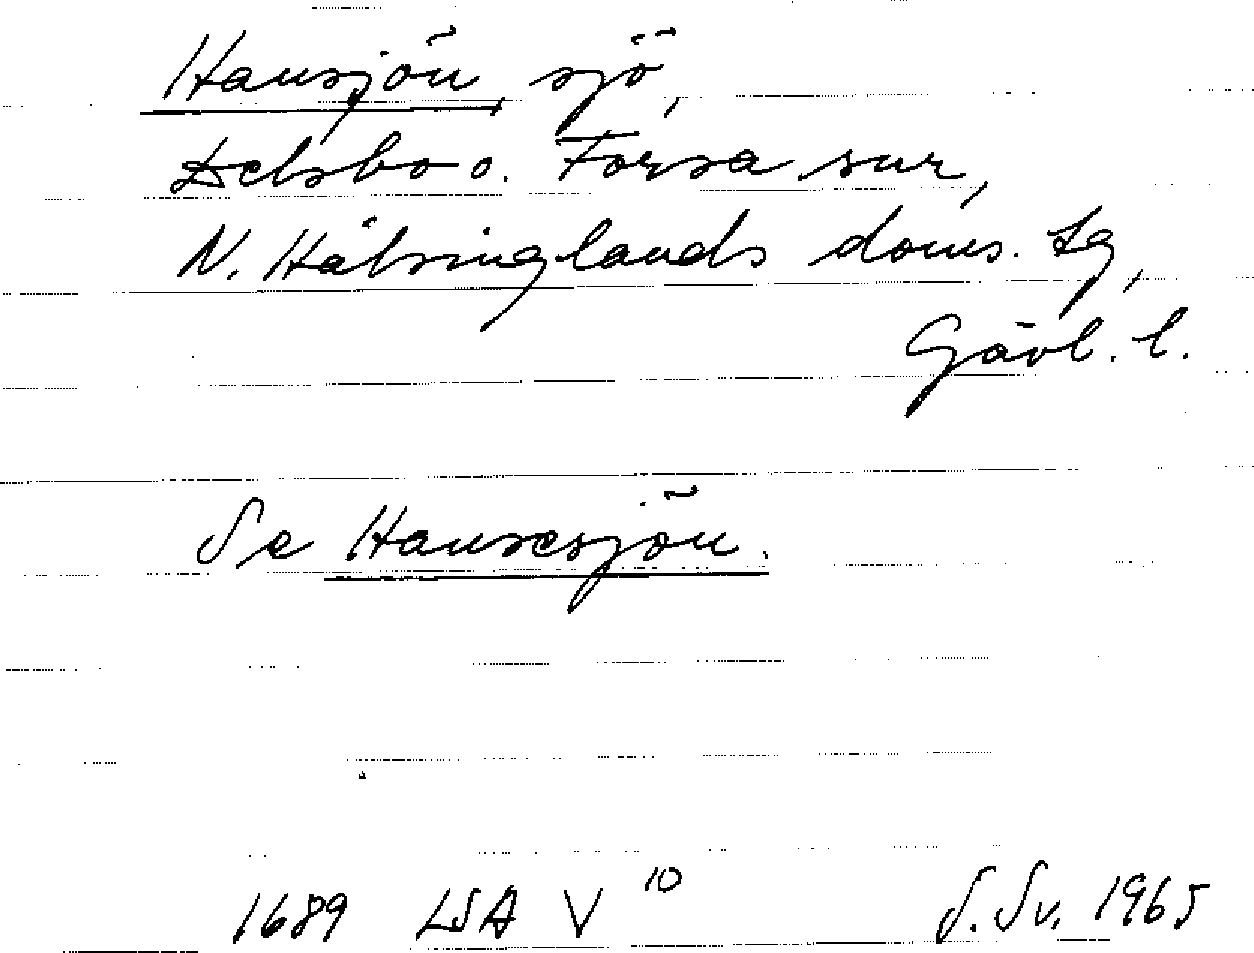 Hansjön, sjö,
Delsbo o. Forsa snr,
N. Hälsinglands doms. tg,
Gävl. l.
Se Hansesjön.
1689 LSA V 10 S. Sv. 1965